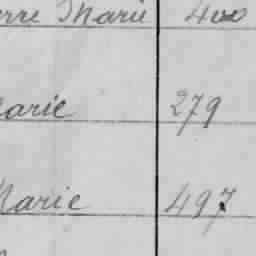 erre Marie 400
Marie 279
Marie 497